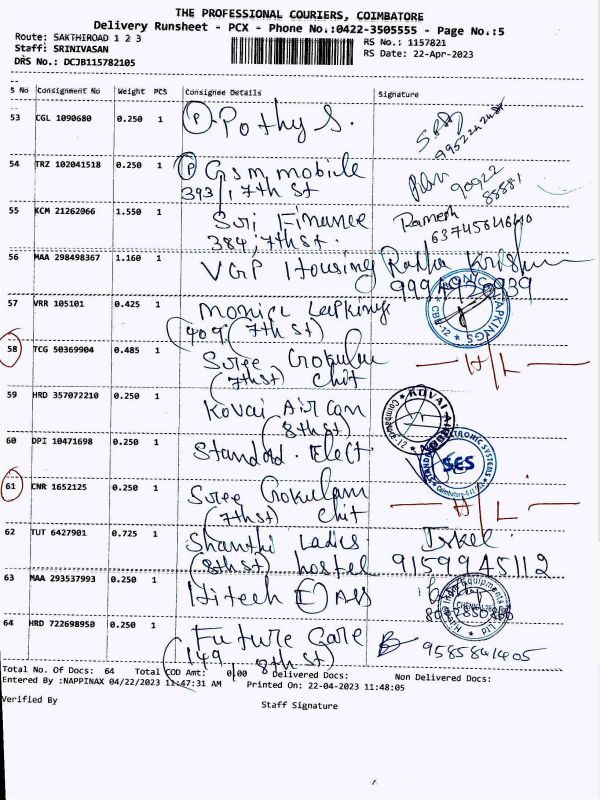 THE PROFESSIONAL COURIERS, COIMBATORE
Delivery Runsheet - PCX - Phone No.:0422-3505555 - Page No.:5
Route: SAKTHIROAD 1 2 3
RS No.: 1157821
Staff: SRINIVASAN
RS Date: 22-Apr-2023
DRS No.: DCJB115782105
S No Consignment No Weight PCS Consignee Details Signature
53 CGL 1090680 0.250 1 (P) Pothy S.
54 TRZ 102041518 0.250 1 (P) Gsm mobile
393/, 7th st
90922
88881
55 KCM 21262066 1.550 1 Sri Finance Ramesh
384, 7th st.
56 MAA 298498367 1.160 1 VGP Housing Radha Krishnan
57 VRR 105101 0.425 1 Monica Lapkings
(409 (7th st)
58 TCG 50369904 0.485 1 Sree Gokulam H/L
(7th st) chit
59 HRD 357072210 0.250 1 Kovai Air can
(8th st)
60 DPI 10471698 0.250 1 Standard. Elect
SES
61 CNR 1652125 0.250 1 Sree Gokulam H/L
(7th st) chit
62 TUT 6427901 0.725 1 Shanthi Ladies
(8th st) hostel 9159945112
63 MAA 293537993 0.250 1 Hitech
64 HRD 722698950 0.250 1 Future Care
(149, 8th st) 9585841405
Total No. Of Docs: 64 Total COD Amt: 0.00 Delivered Docs: Non Delivered Docs:
Entered By :NAPPINAX 04/22/2023 11:47:31 AM Printed On: 22-04-2023 11:48:05
Verified By
Staff Signature